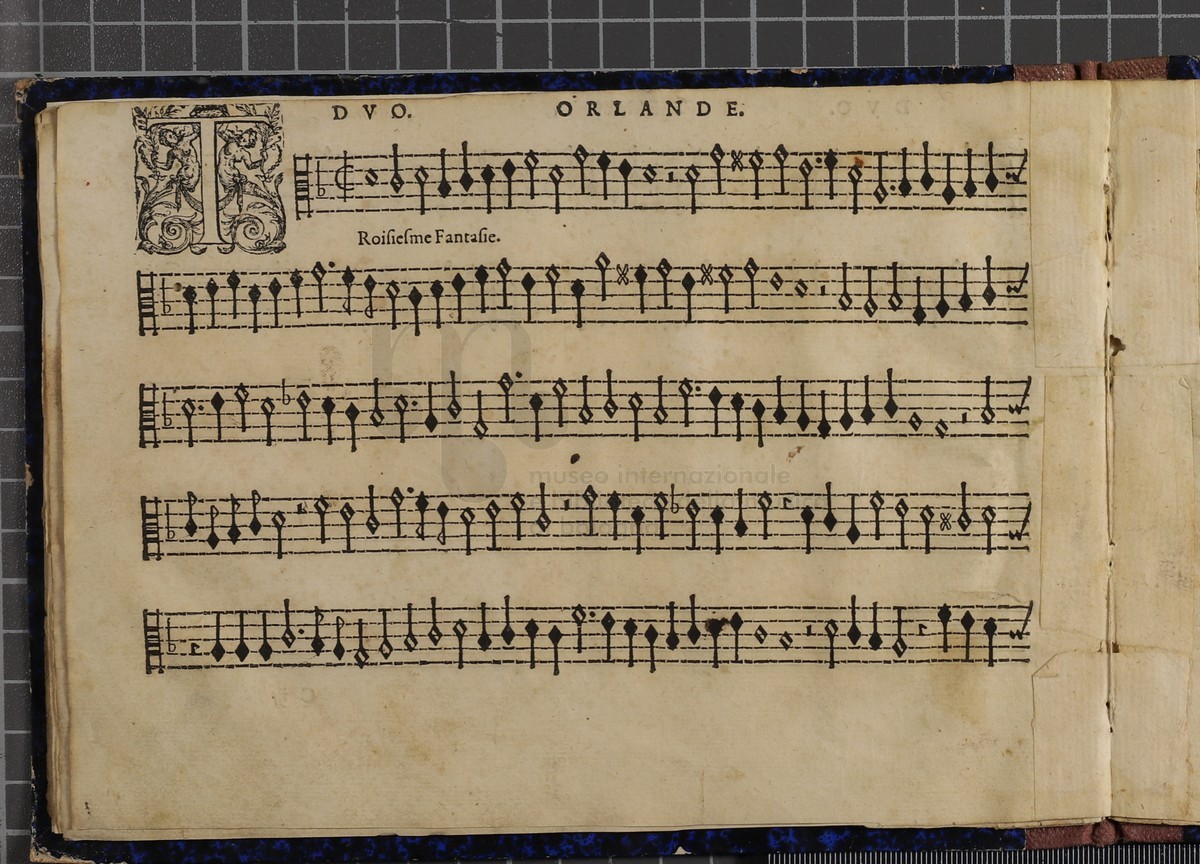 DVO. ORLANDE.
TRoisiesme Fantasie.
museo internazionale